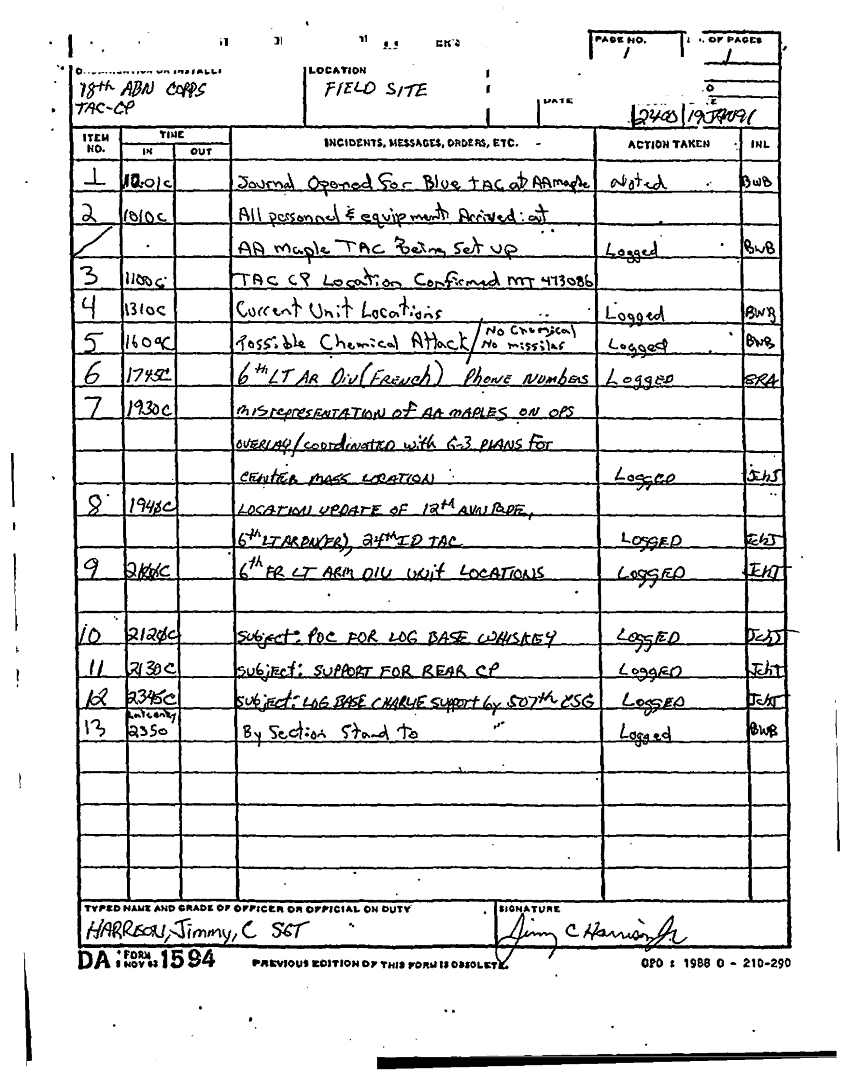 PAGE NO. OF PAGES
1 1
LOCATION
18th ABN CORPS FIELD SITE
TAC-CP
DATE
2400 19JAN91
ITEM NO. TIME INCIDENTS, MESSAGES, ORDERS, ETC. ACTION TAKEN INL
IN OUT
1 Journal Opened For Blue TAC at AA maple Noted BWB
2 1010C All personnel & equipment Arrived at
AA Maple TAC Being Set up Logged BWB
3 1100C TAC CP Location Confirmed MT 473086
4 1310C Current Unit Locations Logged BWB
5 1609C Possible Chemical Attack / No Chemical No missiles Logged BWB
6 1745C 6th LT AR Div (French) Phone Numbers Logged ERA
7 1930C misrepresentation of AA MAPLES ON OPS
OVERLAY/coordinated with G-3 PLANS FOR
CENTER MASS LOCATION Logged
8 LOCATION UPDATE OF 12th AVN BDE,
24th ID TAC LOGGED
9 6th FR LT ARM DIV UNIT LOCATIONS LOGGED
10 2120C Subject: POC FOR LOG BASE WHISKEY LOGGED
11 2130C Subject: SUPPORT FOR REAR CP LOGGED
12 2345C Subject: LOG BASE CHARLIE Support by 507th CSG LOGGED
13 Late entry 2350 By Section Stand to Logged BWB
TYPED NAME AND GRADE OF OFFICER OR OFFICIAL ON DUTY SIGNATURE
HARRISON, Jimmy, C SGT Jimmy C Harrison Jr
DA FORM NOV 62 1594 PREVIOUS EDITION OF THIS FORM IS OBSOLETE. GPO : 1988 O - 210-290